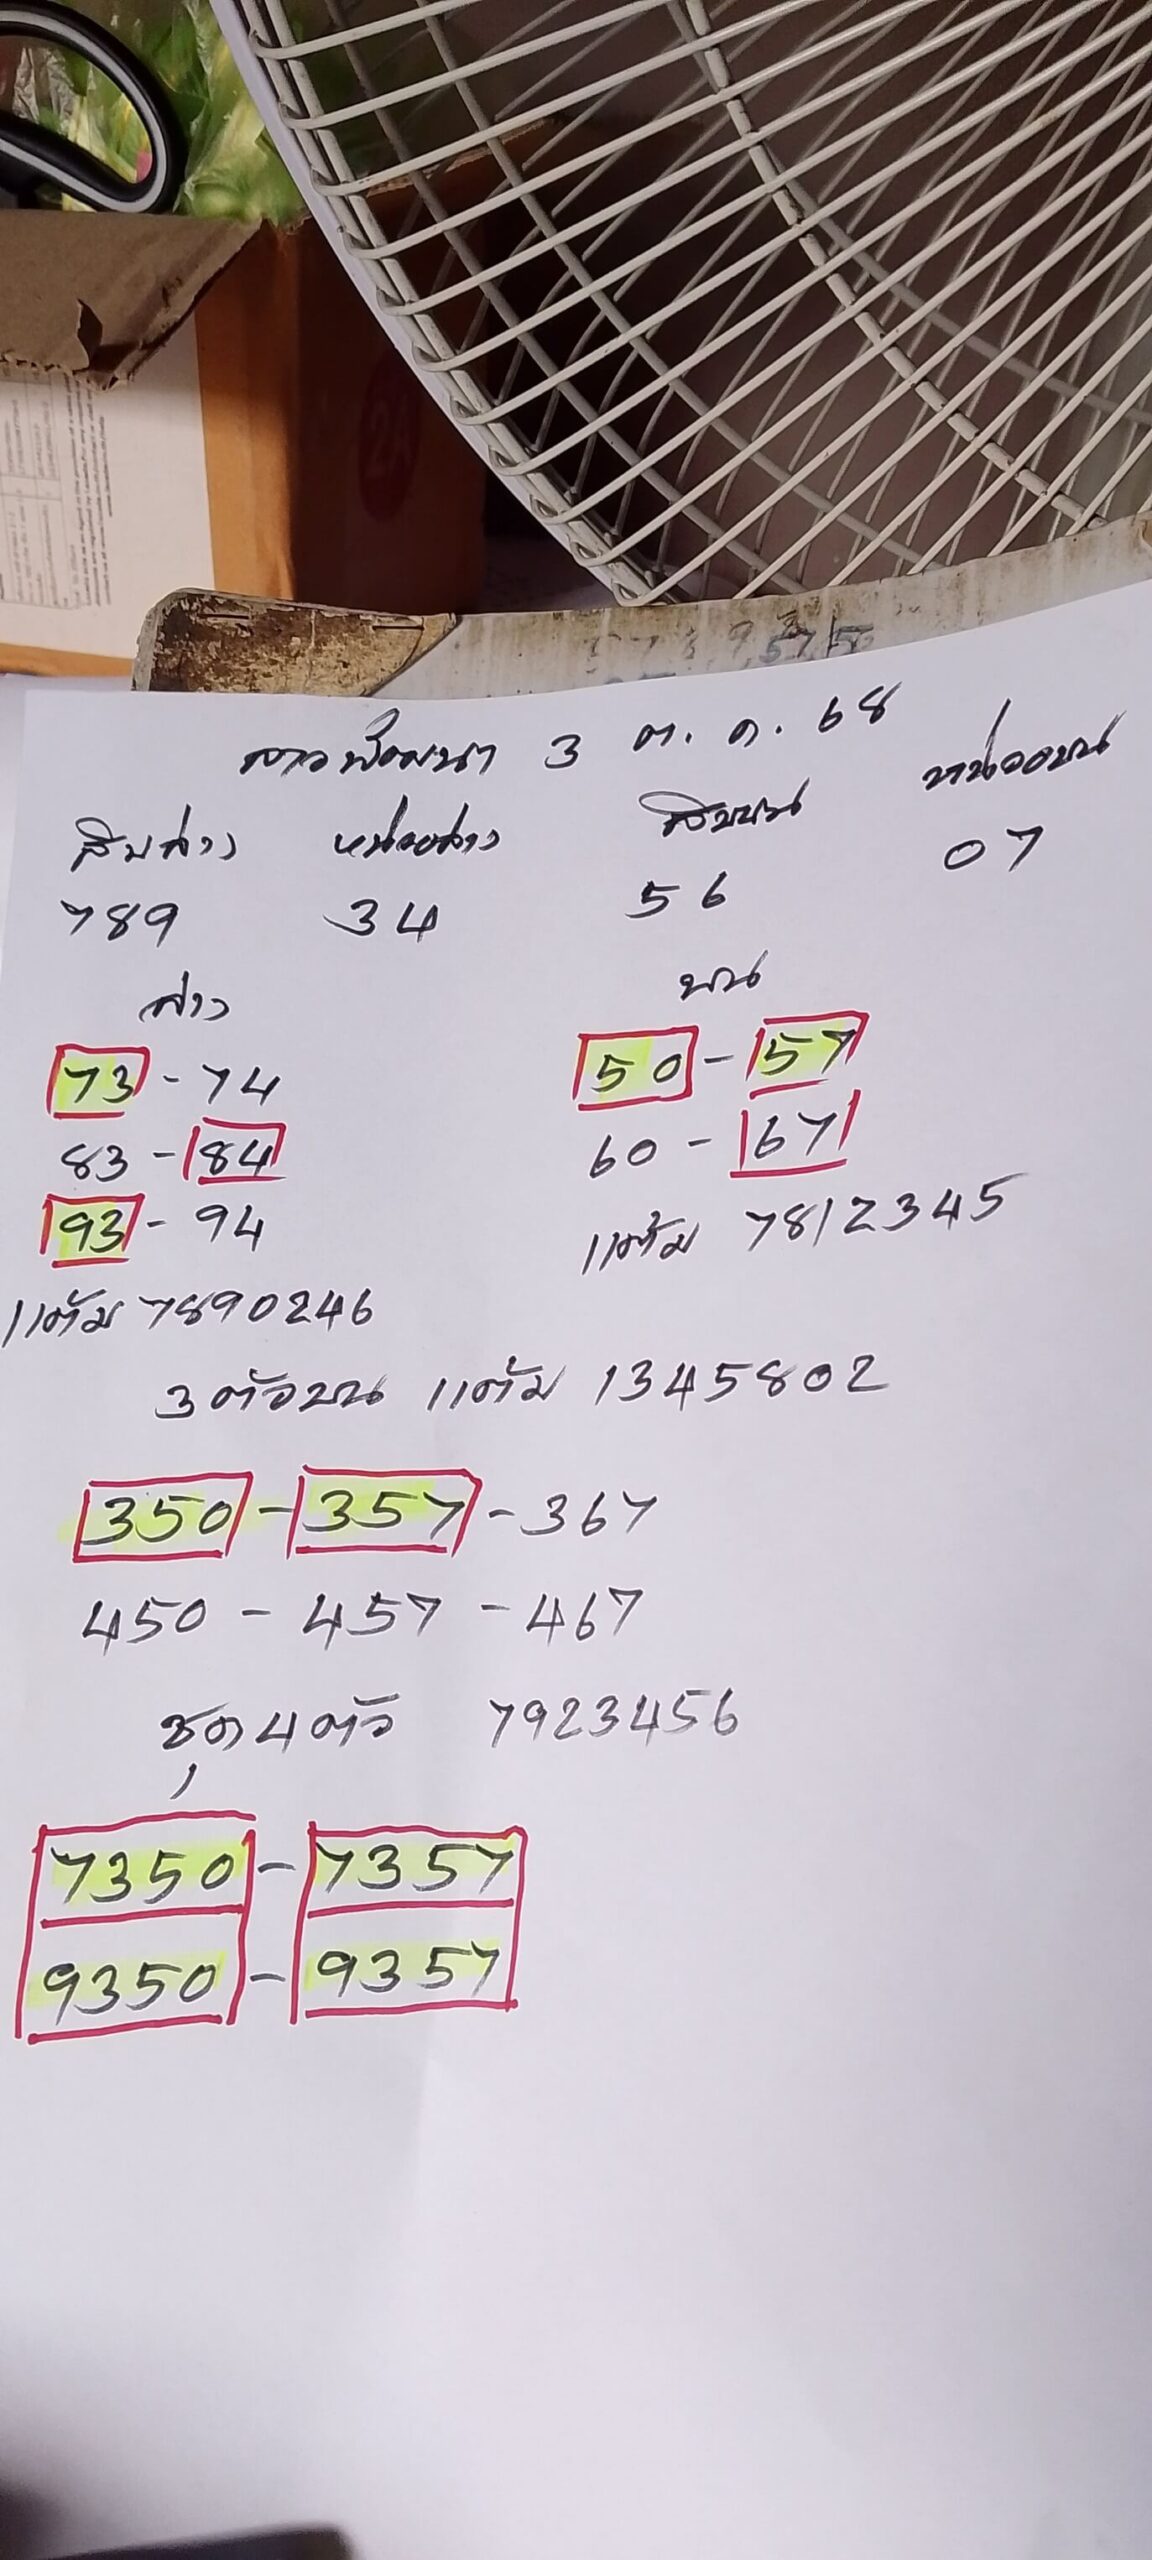 ลาวพัฒนา 3 ต.ค. 68
สิบล่าง หน่วยล่าง สิบบน หน่วยบน
789 34 56 07
ล่าง บน
73 - 74 50 - 57
83 - 84 60 - 67
93 - 94 แต้ม 7812345
แต้ม 7890246
3 ตัวบน แต้ม 1345802
350 - 357 - 367
450 - 457 - 467
ชุด 4 ตัว 7923456
7350 - 7357
9350 - 9357